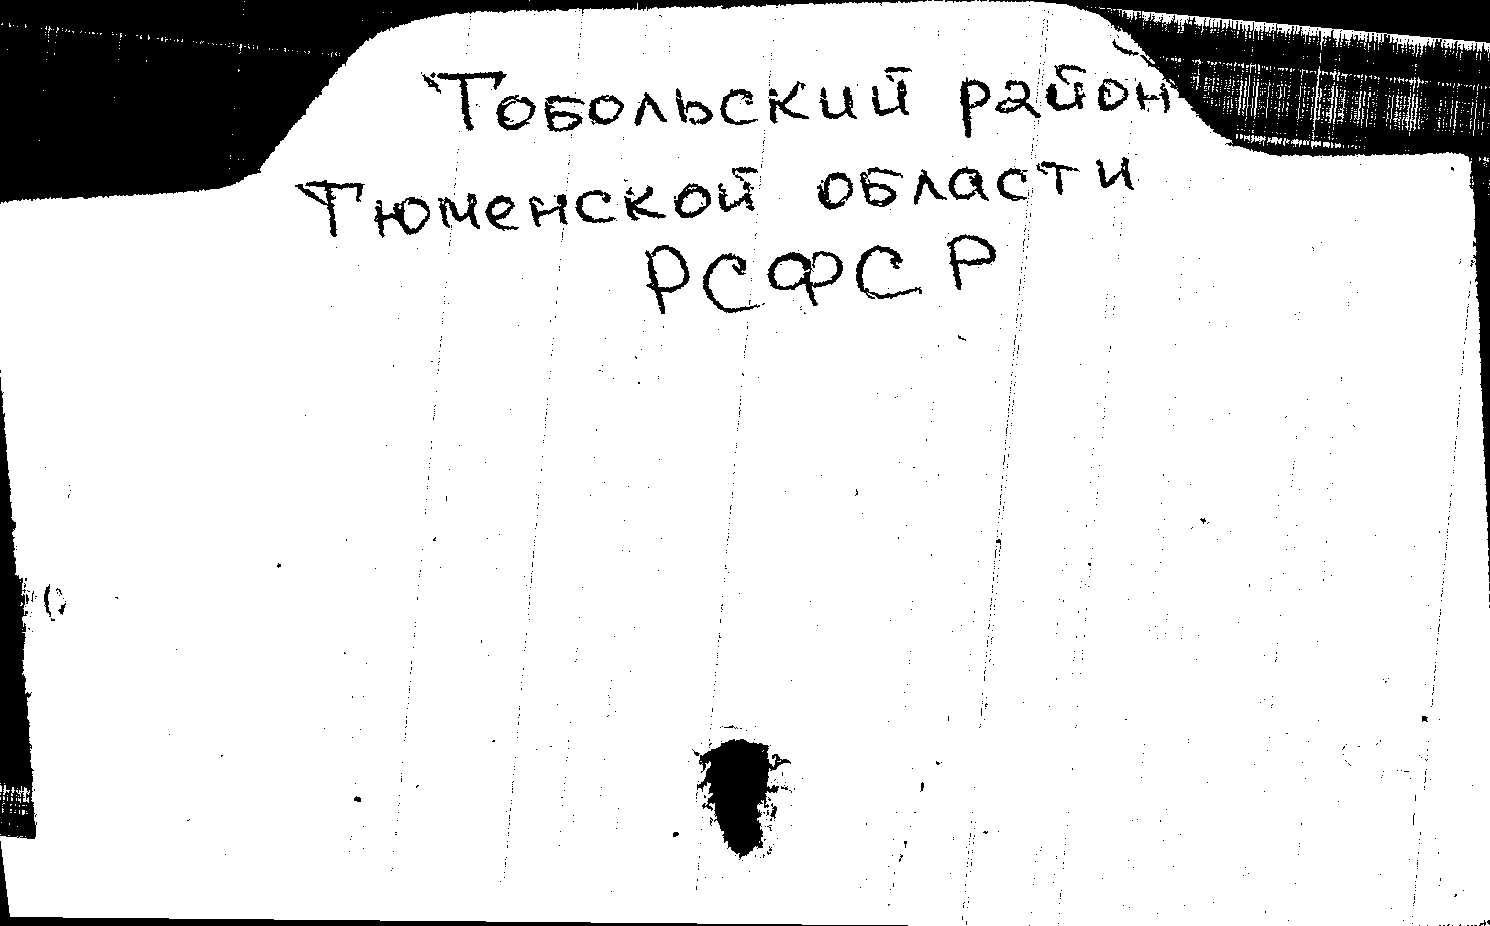 Тобольский район
Тюменской области
РСФСР